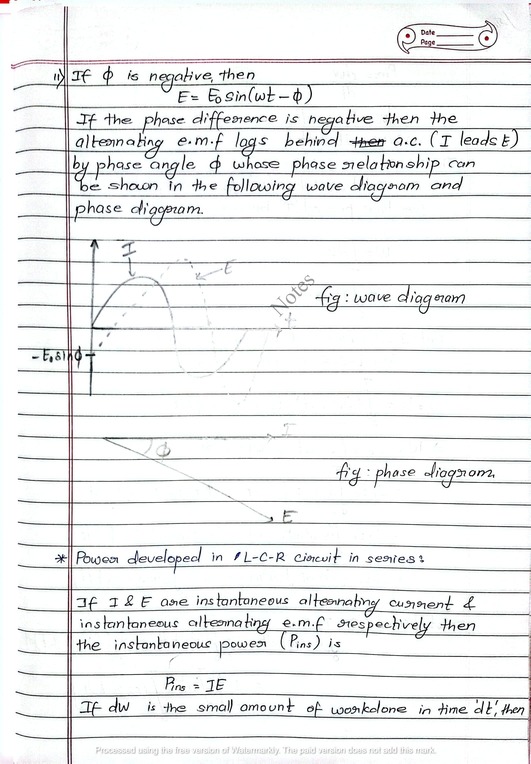 Date
Page
ii) If ϕ is negative, then
E = E₀ sin(ωt − ϕ)
If the phase difference is negative then the
alternating e.m.f lags behind then a.c. (I leads E)
by phase angle ϕ whose phase relationship can
be shown in the following wave diagram and
phase diagram.
I
E
Notes
fig: wave diagram
−E₀ sinϕ
I
ϕ
fig: phase diagram.
E
* Power developed in L-C-R circuit in series:
If I & E are instantaneous alternating current &
instantaneous alternating e.m.f respectively then
the instantaneous power (Pins) is
Pins = IE
If dw is the small amount of workdone in time 'dt', then
Processed using the free version of Watermarkly. The paid version does not add this mark.